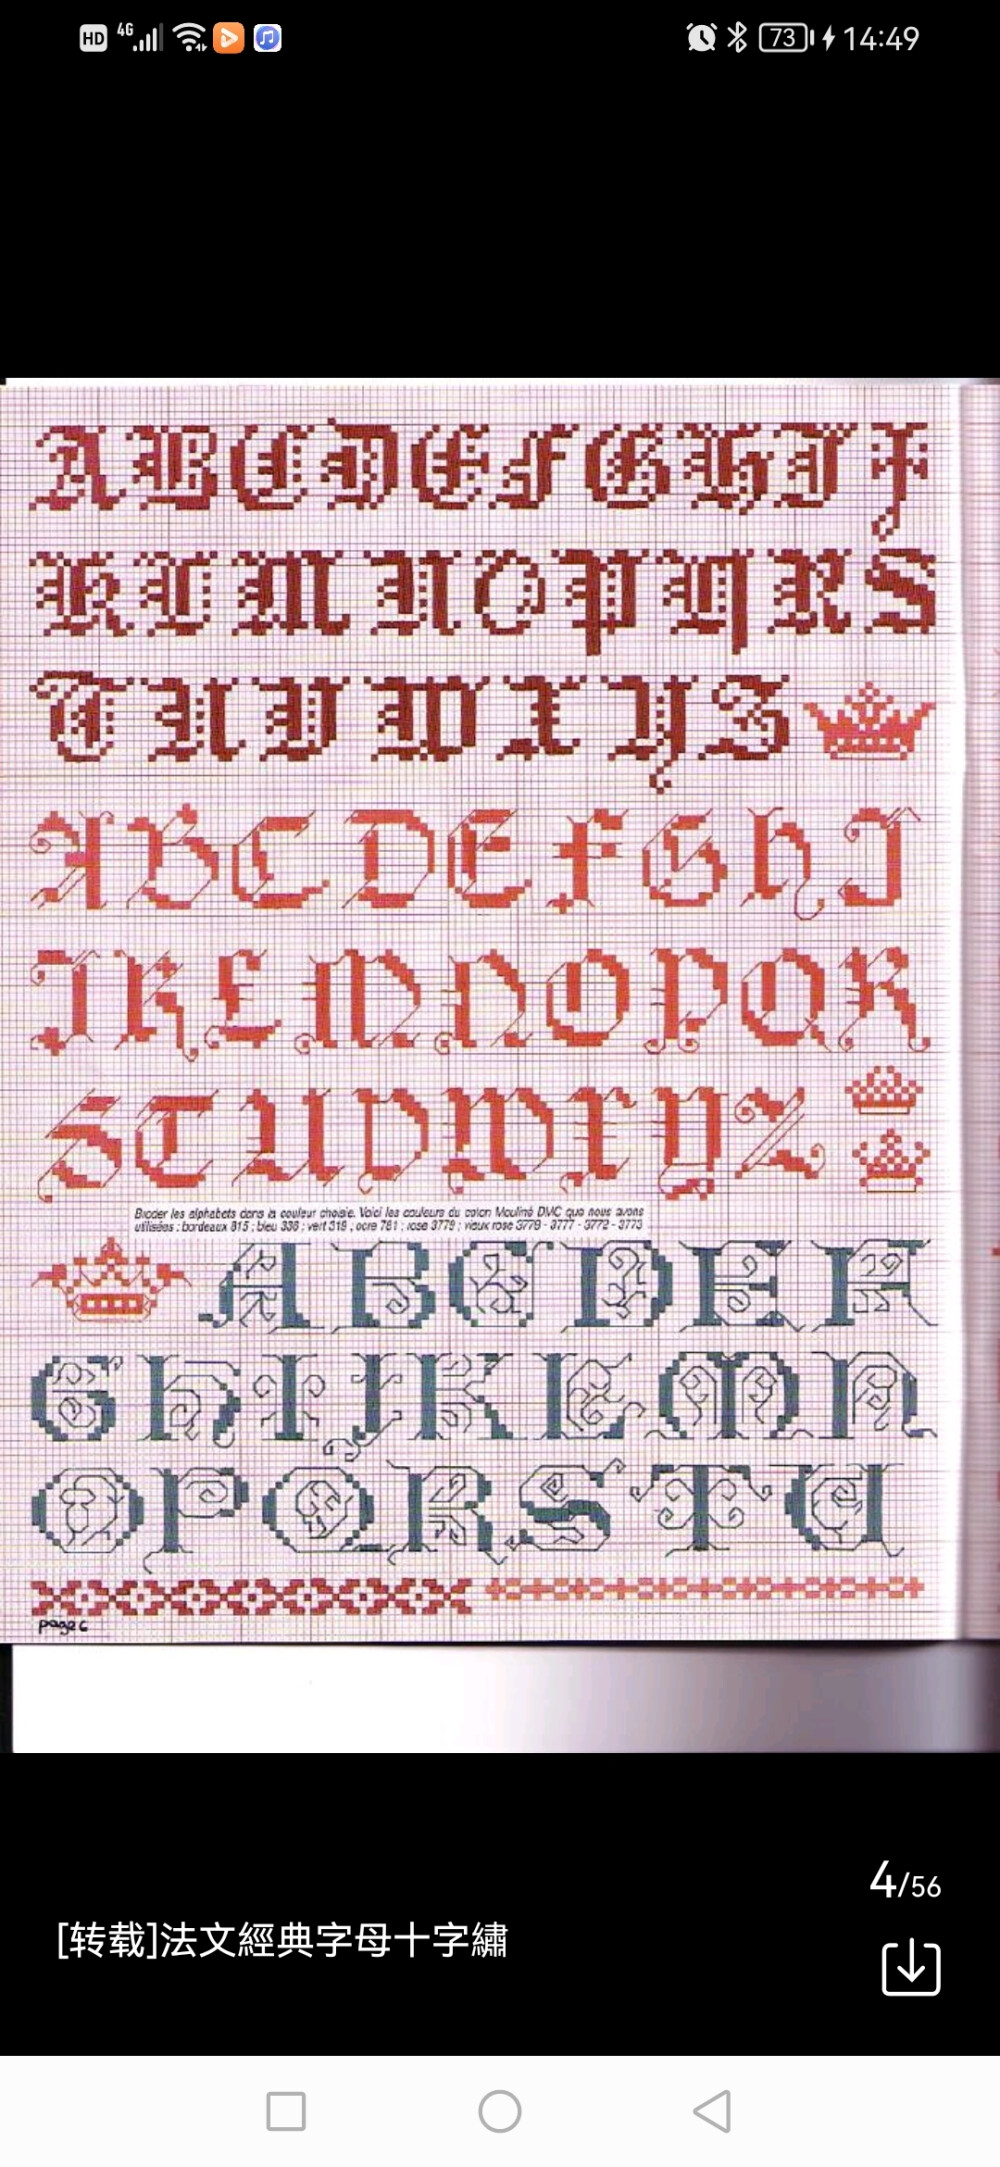 HD 4G 73 14:49
A B C D E F G H I J
K L M N O P Q R S
T U V W X Y Z
A B C D E F G H I
J K L M N O P Q R
S T U V W X Y Z
Broder les alphabets dans la couleur choisie. Voici les couleurs du coton Mouliné DMC que nous avons
utilisées : bordeaux 815 ; bleu 336 ; vert 319 ; ocre 781 ; rose 3779 ; vieux rose 3779 - 3777 - 3772 - 3773
A B C D E F
G H I J K L M N
O P Q R S T U
page 6
4/56
[转载]法文經典字母十字繡